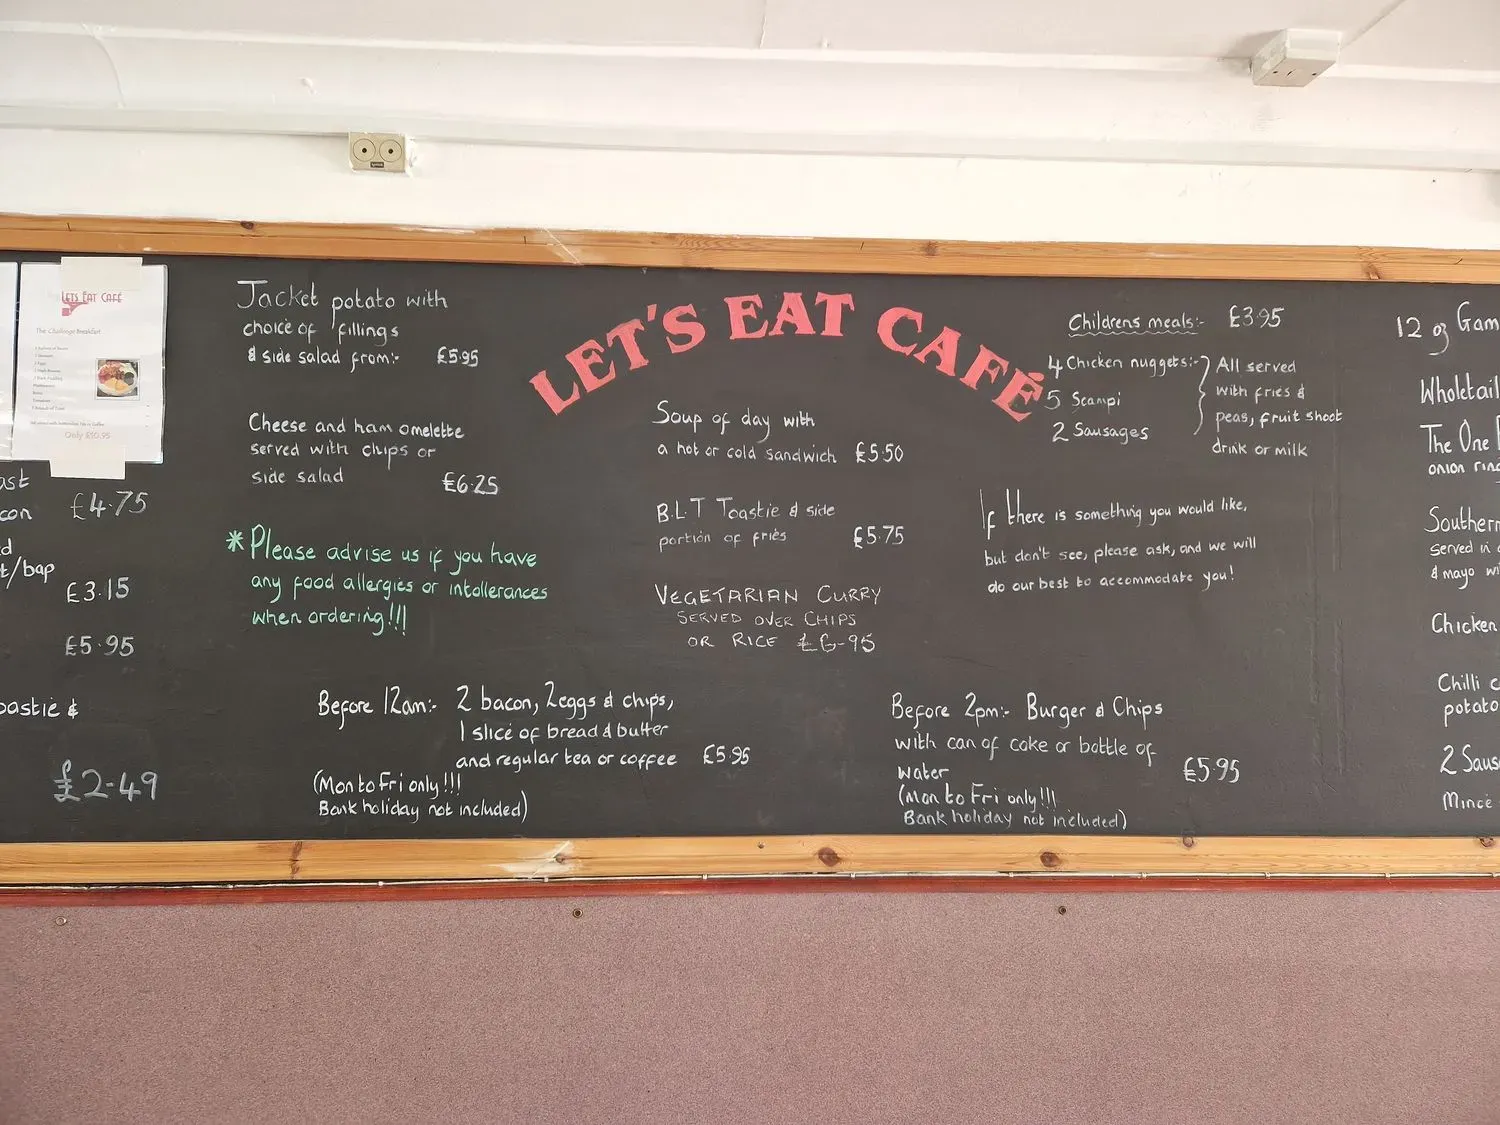 LET'S EAT CAFÉ
LETS EAT CAFÉ
The Challenge Breakfast
Only £10.95
ast
con £4.75
d
t/bap
£3.15
£5.95
oastie &
£2-49
Jacket potato with
choice of fillings
& side salad from:- £5.95
Cheese and ham omelette
served with chips or
side salad £6.25
*Please advise us if you have
any food allergies or intollerances
when ordering!!!
Before 12am:- 2 bacon, 2eggs & chips,
1 slice of bread & butter
and regular tea or coffee £5.95
(Mon to Fri only!!!
Bank holiday not included)
Soup of day with
a hot or cold sandwich £5.50
B.L.T Toastie & side
portion of fries £5.75
VEGETARIAN CURRY
SERVED OVER CHIPS
OR RICE £6-95
Childrens meals:- £3.95
4 Chicken nuggets:-
5 Scampi
2 Sausages
All served
with fries &
peas, fruit shoot
drink or milk
If there is something you would like,
but don't see, please ask, and we will
do our best to accommodate you!
Before 2pm:- Burger & Chips
with can of coke or bottle of
water £5.95
(Mon to Fri only!!!
Bank holiday not included)
12 oz Gam
Wholetail
The One
onion ring
Southern
served in
& mayo wi
Chicken
Chilli c
potato
2 Saus
Mince